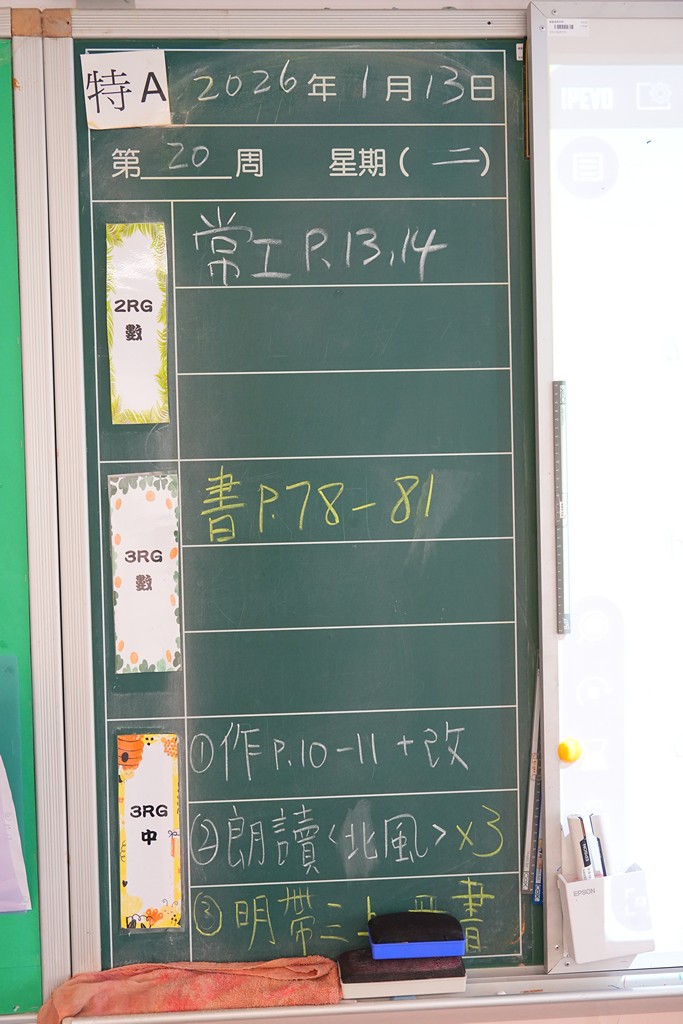 特A
2026年1月13日
第20周 星期(二)
2RG
數
常工 P.13,14
3RG
數
書 P.78-81
3RG
中
①作P.10-11+改
②朗讀<北風>x3
③明帶三上 書
IPEVO
EPSON